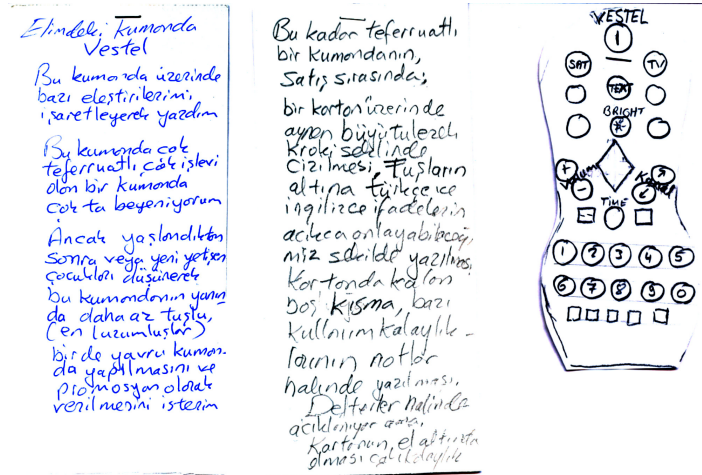 Elimdeki Kumonda
Vestel
Bu kumanda üzerinde
bazı eleştirilerimi
işaretleyerek yazdım
Bu kumanda çok
teferruatlı, çok işlevi
olan bir kumanda
çok ta beyeniyorum
Ancak yaşlandıktan
sonra veya yeni yetişen
çocukları düşünerek
bu kumandanın yanın
da daha az tuşlu,
(en luzumluşlar)
birde yavru kuman-
da yapılmasını ve
promosyan olarak
verilmesini isterim
Bu kadar teferruatlı
bir kumandanın,
Satış sırasında;
bir karton üzerinde
aynen büyütülerek
Kroki şeklinde
Çizilmesi, Tuşların
altına Türkçe ve
ingilizce ifadelerin
açıkca anlayabileceği
miz şekilde yazılması
Kartonda kalan
boş kısma, bazı
kullnıım kalaylık-
larının notlar
halinde yazılması.
Defterler halinde
açıklanıyor ama,
Kartonun, el altında
olması çok kolaylık
VESTEL
1
SAT TV
TEXT
BRIGHT
+ Volum Kanal
-
TIME
1 2 3 4 5
6 7 8 9 0